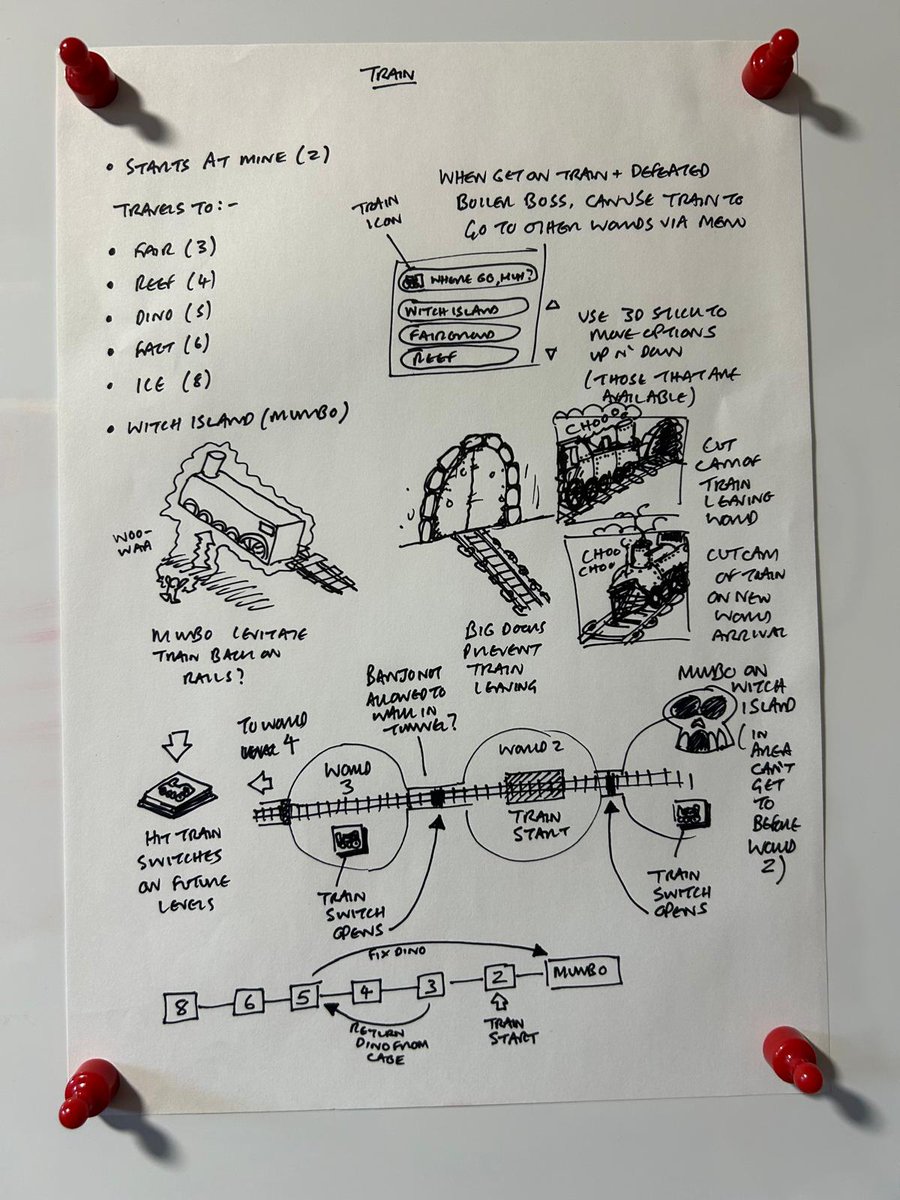 TRAIN
• STARTS AT MINE (2)
TRAVELS TO:-
• FAIR (3)
• REEF (4)
• DINO (5)
• FACT (6)
• ICE (8)
• WITCH ISLAND (MUMBO)
WHEN GET ON TRAIN + DEFEATED
BOILER BOSS, CAN USE TRAIN TO
GO TO OTHER WORLDS VIA MENU
TRAIN
ICON
WHERE GO, HUH?
WITCH ISLAND
FAIRGROUND
REEF
USE 3D STICK TO
MOVE OPTIONS
UP N' DOWN
(THOSE THAT ARE
AVAILABLE)
WOO-
WAA
MUMBO LEVITATE
TRAIN BACK ON
RAILS?
BIG DOORS
PREVENT
TRAIN
LEAVING
CHOOO
CUT
CAM OF
TRAIN
LEAVING
WORLD
CHOO
CHOO
CUT CAM
OF TRAIN
ON NEW
WORLD
ARRIVAL
HIT TRAIN
SWITCHES
ON FUTURE
LEVELS
TO WORLD
4
WORLD
3
TRAIN
SWITCH
OPENS
BANJO NOT
ALLOWED TO
WALK IN
TUNNEL?
WORLD 2
TRAIN
START
MUMBO ON
WITCH
ISLAND
(IN
AREA
CAN'T
GET
TO
BEFORE
WORLD
2)
TRAIN
SWITCH
OPENS
FIX DINO
8
6
5
4
3
2
MUMBO
RETURN
DINO FROM
CAGE
TRAIN
START